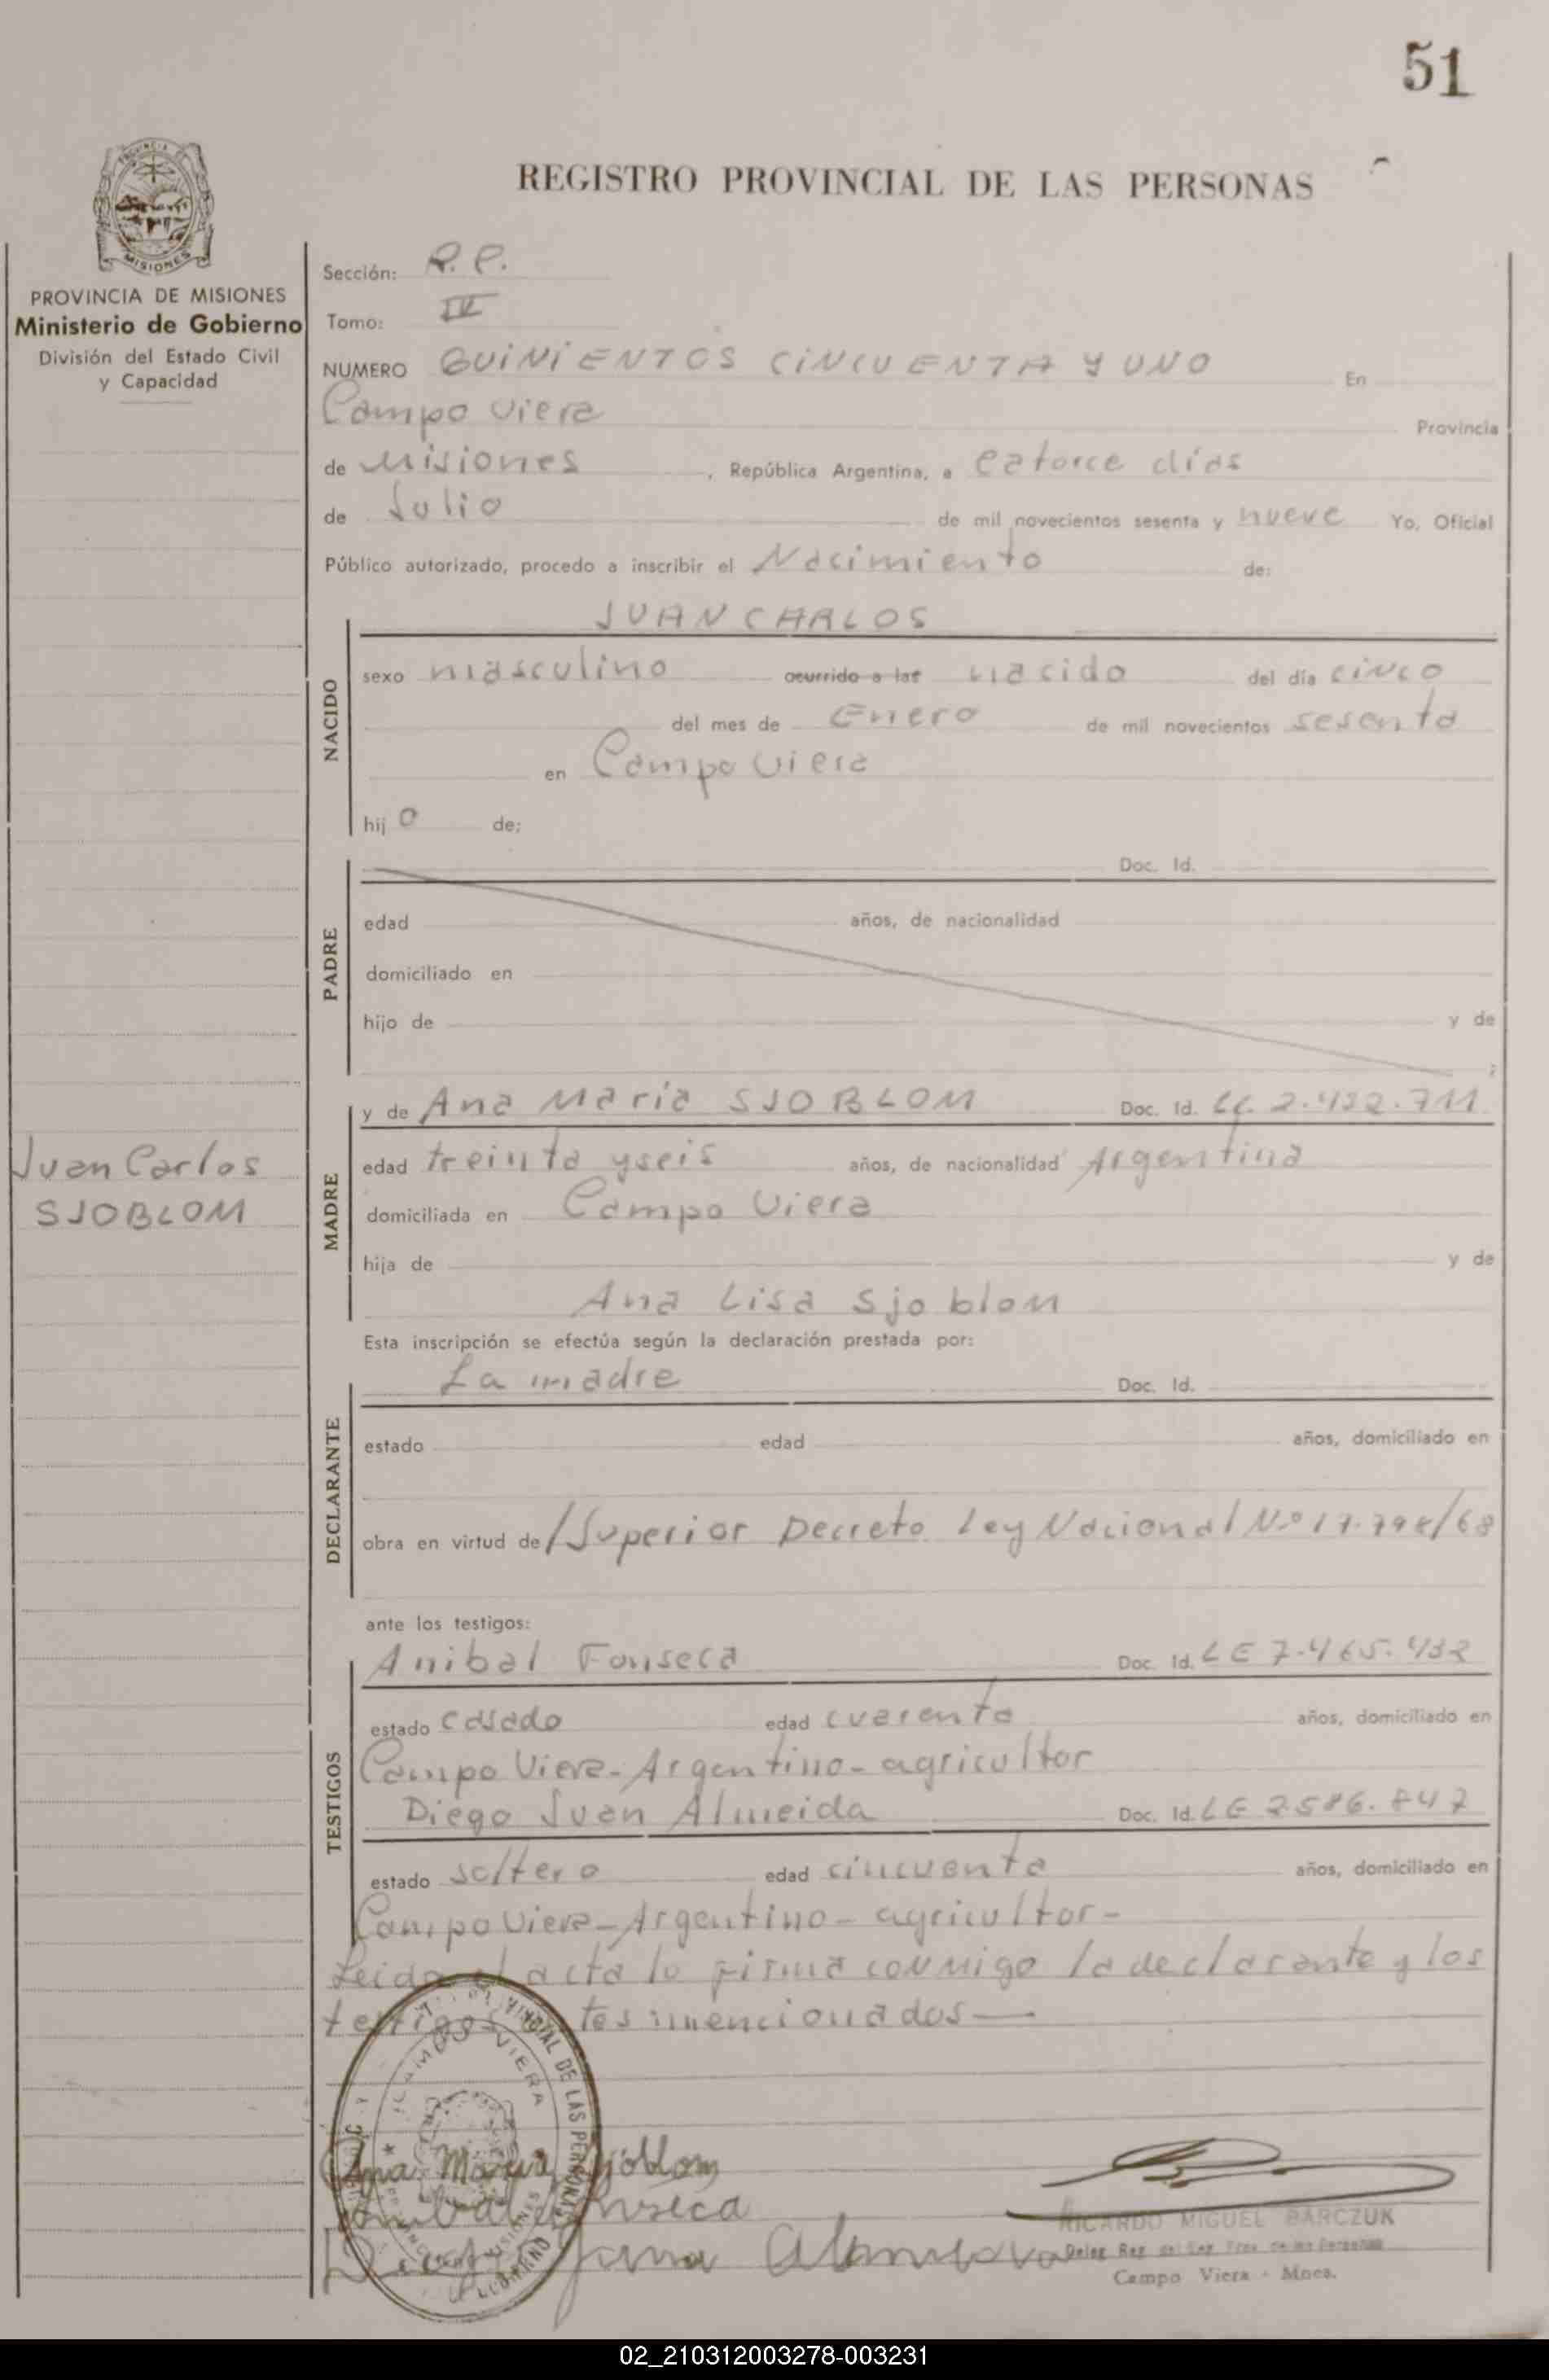 51
REGISTRO PROVINCIAL DE LAS PERSONAS
PROVINCIA DE MISIONES
Ministerio de Gobierno
División del Estado Civil
y Capacidad
Sección: R. P.
Tomo: IV
NUMERO QUINIENTOS CINCUENTA Y UNO En
Campo Viera Provincia
de Misiones, República Argentina, a catorce días
de Julio de mil novecientos sesenta y nueve Yo, Oficial
Público autorizado, procedo a inscribir el Nacimiento de:
NACIDO
JUAN CARLOS
sexo masculino ocurrido a las nacido del día cinco
del mes de Enero de mil novecientos sesenta
en Campo Viera
hij o de;
PADRE
Doc. Id.
edad años, de nacionalidad
domiciliado en
hijo de y de
;
Juan Carlos
SJOBLOM
MADRE
y de Ana Maria SJOBLOM Doc. Id. LC. 2.432.711
edad treinta y seis años, de nacionalidad Argentina
domiciliada en Campo Viera
hija de y de
Ana Lisa Sjoblom
Esta inscripción se efectúa según la declaración prestada por:
DECLARANTE
La madre Doc. Id.
estado edad años, domiciliado en
obra en virtud de /Superior Decreto Ley Nacional N.º
ante los testigos:
TESTIGOS
Anibal Fonseca Doc. Id. LE 7.465.432
estado casado edad cuarenta años, domiciliado en
Campo Viera - Argentino - agricultor
Diego Juan Almeida Doc. Id. LE
estado soltero edad cincuenta años, domiciliado en
Campo Viera - Argentino - agricultor -
Leida el acta lo firma conmigo la declarante y los
testigos tes mencionados —
CAMPO VIERA
Ana Maria Sjöblom
Anibal Fonseca
RICARDO MIGUEL BARCZUK
Campo Viera - Mnes.
02_210312003278-003231